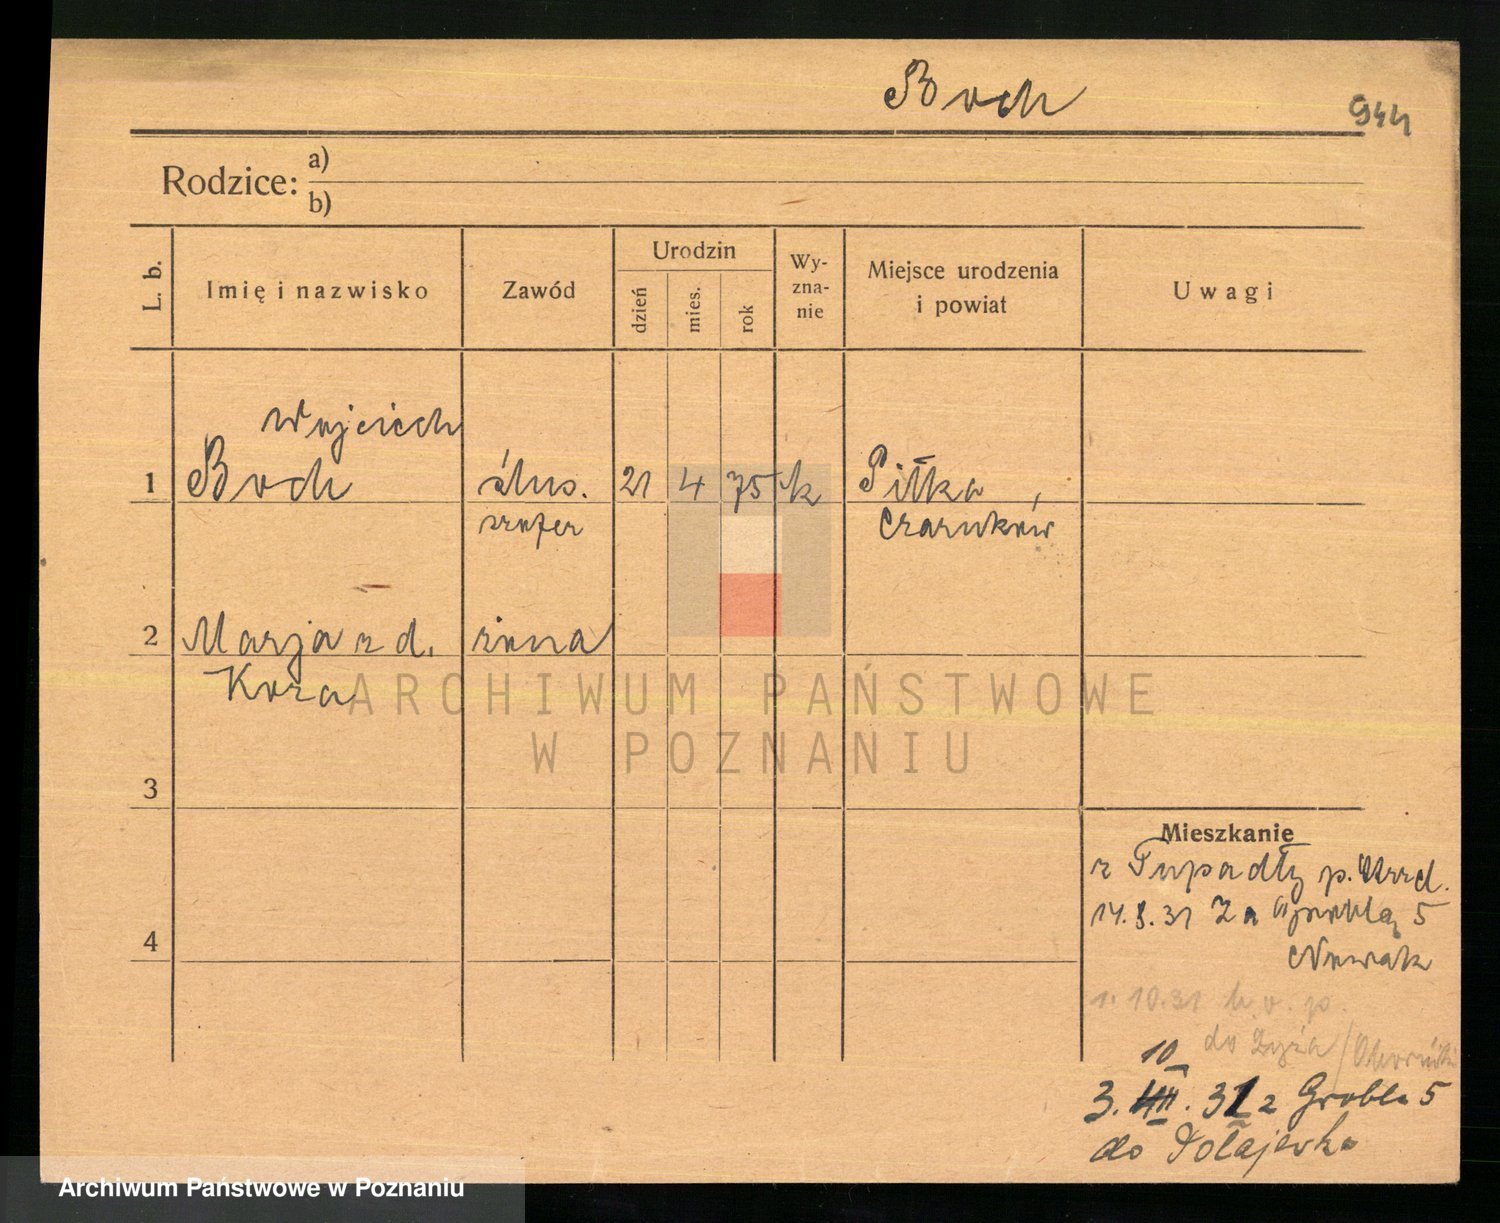 Boch
944
Rodzice: a)
b)
L. b.
Imię i nazwisko
Zawód
Urodzin
dzień
mies.
rok
Wy-
zna-
nie
Miejsce urodzenia
i powiat
Uwagi
Wojciech
1 Boch ślus. 21 4 75 k Piłka,
szofer Czarnków
2 Marja z d. żona
Koza
3
4
Mieszkanie
z Tupadły p.
14.8.31 Za Groblą 5
Nowak
1.10.31 h. o. p.
do
10
3. . 31 z Grobla 5
do Połajewka
ARCHIWUM PAŃSTWOWE
W POZNANIU
Archiwum Państwowe w Poznaniu